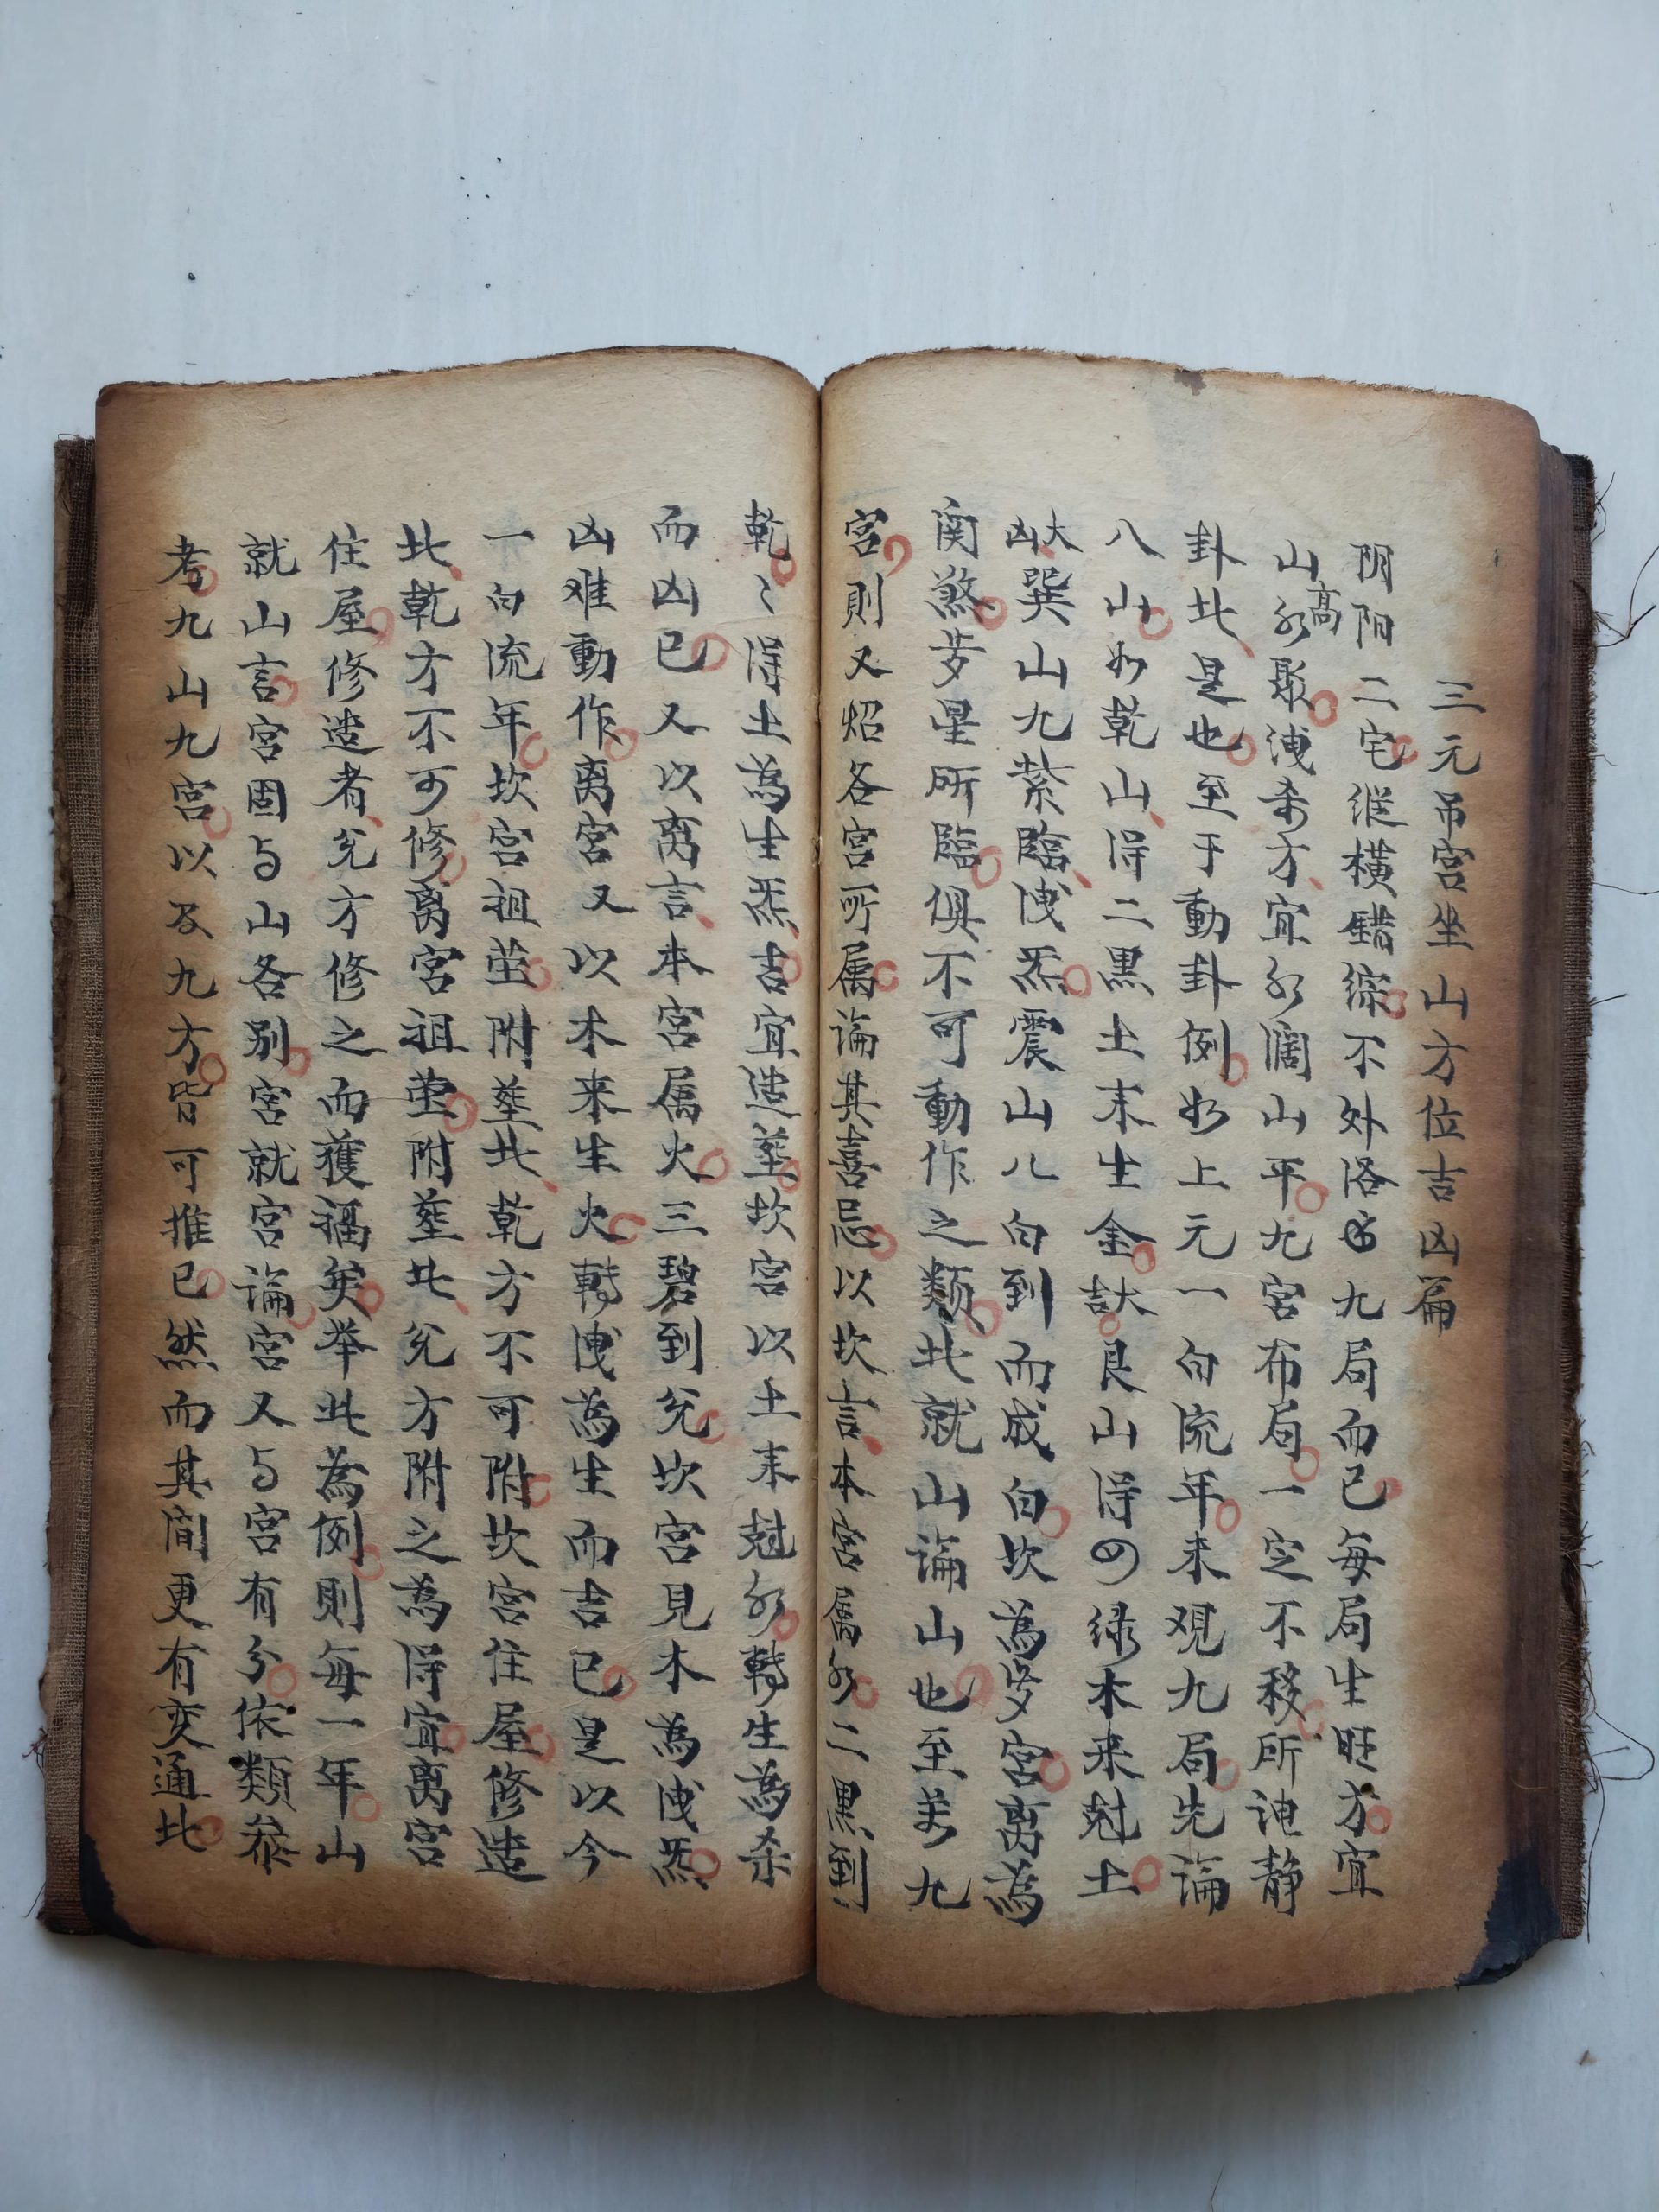 三元吊宮坐山方位吉凶篇
阴阳二宅縱横錯綜不外洛书九局而已每局生旺方宜
山高水聚洩杀方宜水阔山平九宮布局一定不移所谓静
卦此是也至于動卦例如上元一白流年来观九局先論
八山如乾山得二黑土来生金大吉艮山得四绿木来尅土
大凶巽山九紫臨洩炁震山八白到而成白坎為岁宮离為
関煞岁星所臨俱不可動作之類此就山論山也至若九
宮則又炤各宮所属論其喜忌以坎言本宮属水二黑到
乾乾得土為生炁吉宜造塟坎宮以土来尅水轉生為杀
而凶已又以离言本宮属火三碧到兑坎宮見木為洩炁
凶难動作离宮又以木来生火轉洩為生而吉已是以今
一白流年坎宮祖茔附塟此乾方不可附坎宮住屋修造
此乾方不可修离宮祖茔附塟此兑方附之為得宜离宮
住屋修造者兑方修之而獲福矣举此為例則每一年山
就山言宮固与山各别宮就宮論宮又与宮有分依類叅
考九山九宮以及九方皆可推已然而其间更有变通此